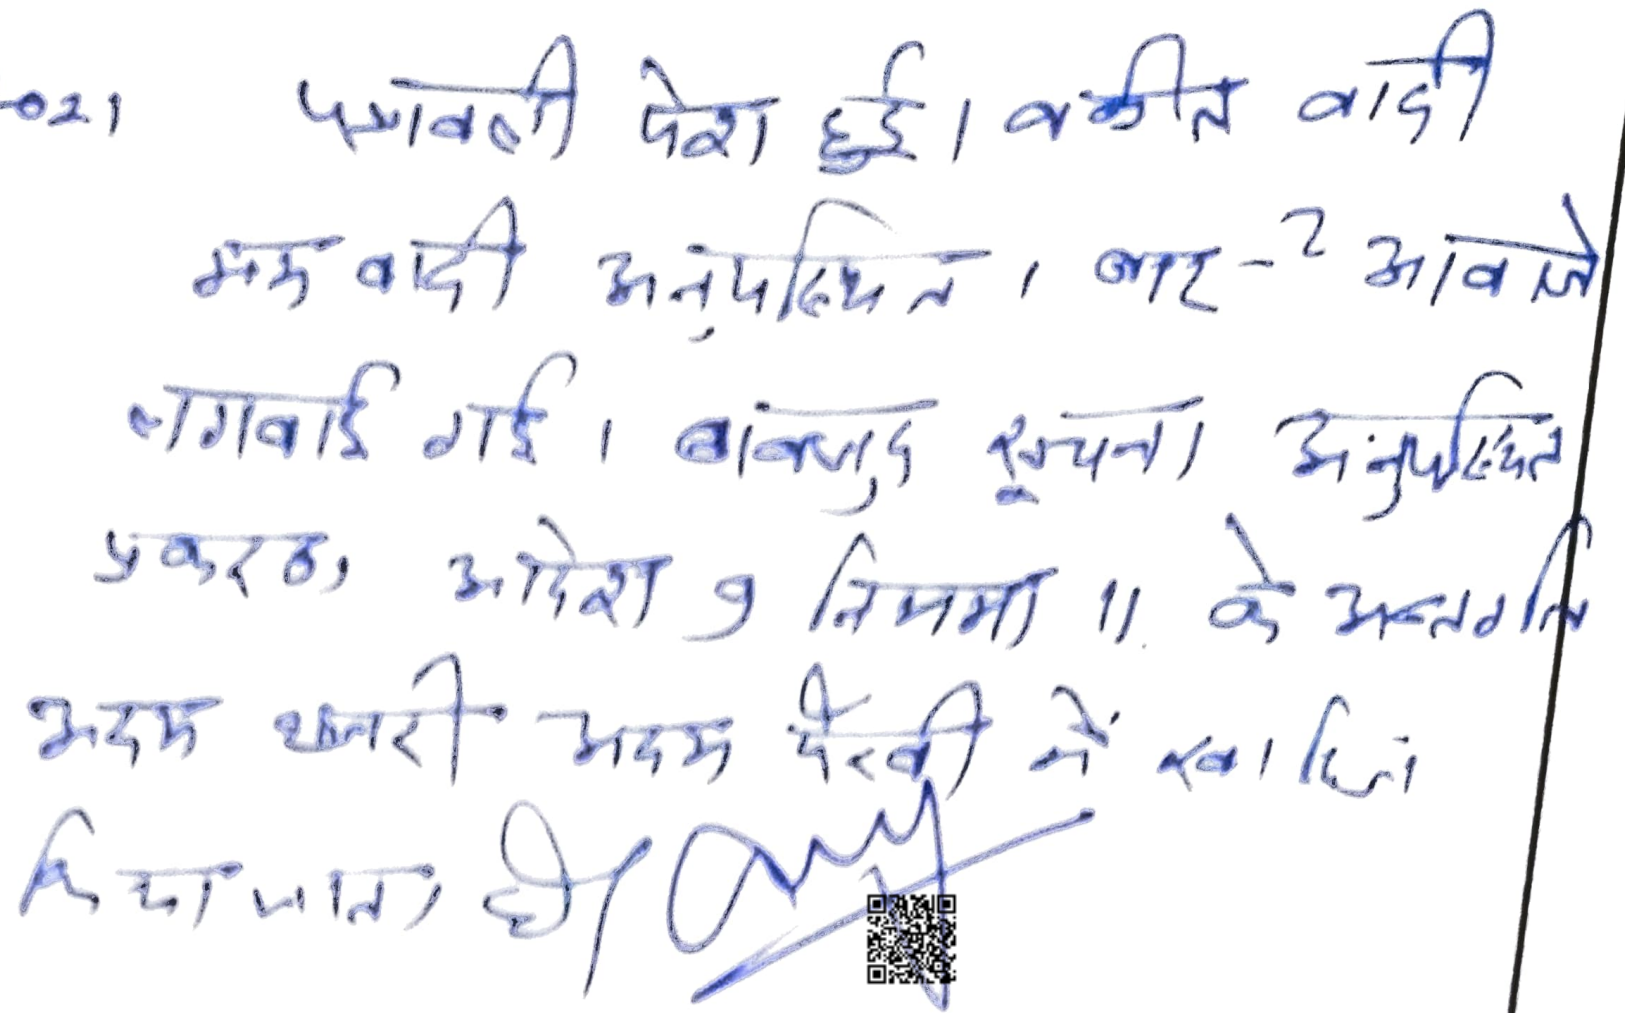 021 पत्रावली पेश हुई। वकील वादी
मय वादी अनुपस्थित। बार-2 आवाजे
लगवाई गई। बावजुद सूचना अनुपस्थित
प्रकरण, आदेश 9 नियम 11 के अन्तर्गत
अदम हाजरी अदम पैरवी में खारिज
किया जाता है।